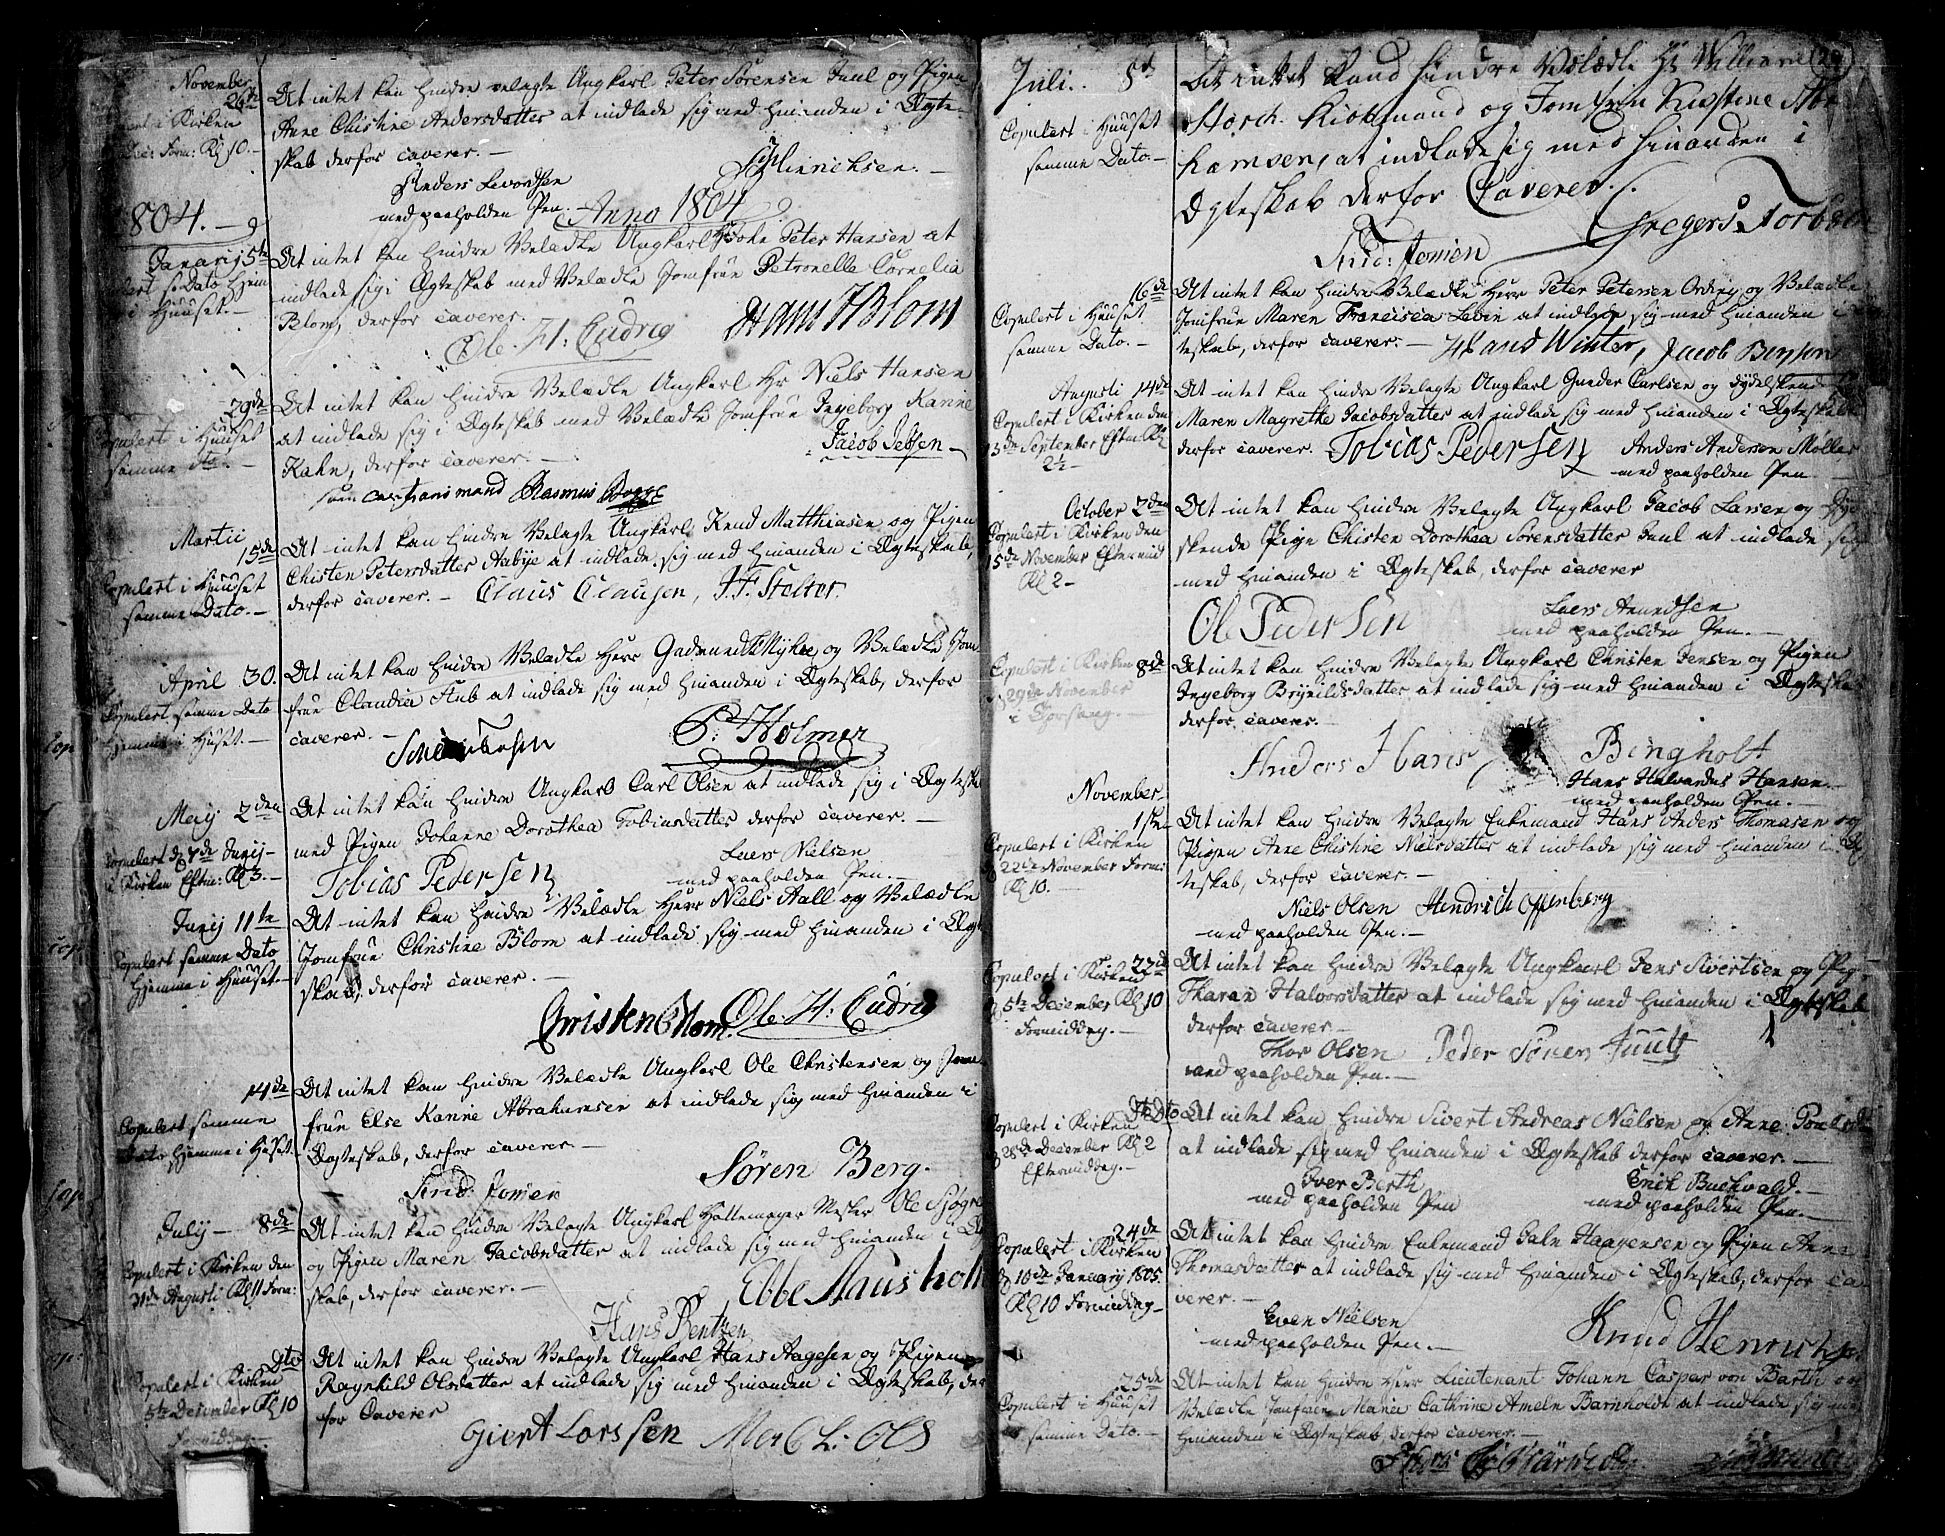 November
26de
i Kirken
Form: Kl 10. —
At intet kan hindre velagte Ungkarl Peter Sörensen Juul og Pigen
Anne Chistine Andersdatter at indlade sig med hinanden i Ægte-
skab derfor caverer. —
Hinrichsen. —
Anders Levordsen
med paaholden Pen. —
1804. —
Anno 1804
Januarij 5te
Dato hjem
i Huuset. —
At intet kan hindre Velædle Ungkarl John Peter Hansen at
indlade sig i Ægteskab med Velædle Jomfrue Petronelle Cornelia
Blom, derfor caverer.
Ole. H: Eudrig Hans H Blom
29de
Copulert i Huuset
samme Dto. —
At intet kan hindre Velædle Ungkarl Hr Niels Hansen
at indlade sig i Ægteskab med Velædle Jomfrue Ingeborg Kanne
Kahn, derfor caverer. —
Jacob Jebsen —
som Rasmus
Martii
15de
Copulert i Huuset
samme Dato. —
At intet kan hindre Velagte Ungkarl Knud Matthiasen og Pigen
Chisten Petersdatter Aabye at indlade sig med hinanden i Ægteskab,
derfor caverer. — Claus Clausen, J. F. Stolter.
April 30.
Copulert samme Dato
hjemme i Huset. —
At intet kan hindre Velædle Herr Myhre og Velædle Jom
frue Claudia Aub at indlade sig med hinanden i Ægteskab, derfor
caverer. —
P. Holmer
Meij 2den
Copulert d 7de Junij —
i Kirken Eftm: Kl 3. —
At intet kan hindre Ungkarl Carl Olsen at indlade sig i Ægteska
med Pigen Johanne Dorothea Tobiasdatter derfor caverer. —
Tobias Pedersen
Laers Nielsen
med paaholden Pen. —
Junij 11te
Copulert samme Dato
hjemme i Huuset. —
At intet kan hindre Velædle Herr Niels Aall og Velædle
Jomfrue Christine Blom at indlade sig med hinanden i Ægt
skab, derfor caverer. —
Christen Blom. Ole. H: Eudrig
14de
Copulert samme
Dato hjemme i Huset.
At intet kan hindre Velædle Ungkarl Ole Christensen og Jom
frue Else Kanne Abrahamsen at indlade sig med hinanden i
Ægteskab, derfor caverer. —
Søren Berg.
Frid: Jonsen
July — 8de
Copulert i Kirken den
31de Augusti Kl 11 Form:
At intet kan hindre Velagte Ungkarl Hattemager Mester Ole Sjögre
og Pigen Maren Jacobsdatter at indlade sig med hinanden i Æg
skab, derfor caverer. —
Ebbe Aausholt
Hans Bentzen
Dto
Copulert i Kirken
5te December Kl 10
Formiddag. —
At intet kan hindre Velagte Ungkarl Hans Aagesen og Pigen
Ragnhild Olsdatter at indlade sig med hinanden i Ægteskab, der
for Caverer
Giert Lorssen
Juli. 8de
Copulert i Huuset
samme Dato. —
At intet kand hindre Velædle Hr Willum
Storch. Kiöbmand og Jomfrue Kirstine Abr
hamsen, at indlade sig med hinanden i
Ægteskab derfor Caverer. —
Gregers Torbørn
Frid: Jonsen
16de
Copulert i Huuset
samme Dato. —
At intet kan hindre Velædle Herr Peter Petersen Ording og Velædle
Jomfrue Maren Francisca Levin at indlade sig med hinanden i
teskab, derfor caverer. — H Land Winter, Jacob Benson
Augusti 14de
Copulert i Kirken den
13de September Eftm Kl
2½ —
At intet kan hindre Velagte Ungkarl Gunder Carlsen og dydelskende
Maren Magrethe Jacobsdatter at indlade sig med hinanden i Ægteskab
derfor caverer. Tobias Pedersen Anders Andersen Møller
med paaholden Pen
October 2den
Copulert i Kirken den
15de November Eftermid
Kl 2 —
At intet kan hindre Velagte Ungkarl Jacob Larsen og dyd
skende Pige Chisten Dorothea Sorensdatter Juul at indlade sig
med hinanden i Ægteskab, derfor caverer
Ole Pedersen
Laers Amundsen
med paaholden Pen. —
8de
Copulert i Kirken
d 29de November
i Gjersang. —
At intet kan hindre Velagte Ungkarl Christen Jensen og Pigen
Ingeborg Brynildsdatter at indlade sig med hinanden i Ægteskab
derfor caverer. —
Anders Hans Bingholt
Hans Halvardus Hansen. —
med paaholden Pen. —
November
1ste
Copulert i Kirken
d 22de November Formi
Kl 10. —
At intet kan hindre Velagte Enkemand Hans Anders Thomasen og
Pigen Anne Chistine Nielsdatter at indlade sig med hinanden i Æg
teskab, derfor caverer. —
Niels Olsen Hendrich Oppenberg
med paaholden Pen. —
22de
Copulert i Kirken
d 5te December Kl 10
Formiddag. —
At intet kan hindre Velagte Ungkarl Jens Sivertsen og Pig
Tharan Halvorsdatter at indlade sig med hinanden i Ægteskab
derfor caverer —
Thor Olsen Peder Sönen Juull
med paaholden Pen. —
Dto
Copulert i Kirken
d 28de December Kl 2
Eftermiddag. —
At intet kan hindre Sivert Andreas Nielsen og Anne Poulsda
at indlade sig med hinanden i Ægteskab derfor caverer. —
Iver Berth Erich Buchvald. —
med paaholden Pen med paaholden Pen. —
24de
Copulert i Kirken
d 10de Januarij 1805.
Kl 10 Formiddag —
At intet kan hindre Enkemand Haagensen og Pigen Anne
Thomasdatter at indlade sig med hinanden i Ægteskab, derfor ca
verer. —
Even Nielsen
med paaholden Pen. —
Knud Henrichsen
25de
Copulert i Huuset
samme Dato. —
At intet kan hindre Herr Lieutenant Johann Caspar von Barth og
Velædle Jomfrue Maria Cathrine Ameln Barnholdt at indlade sig med
hinanden i Ægteskab derfor caverer. —